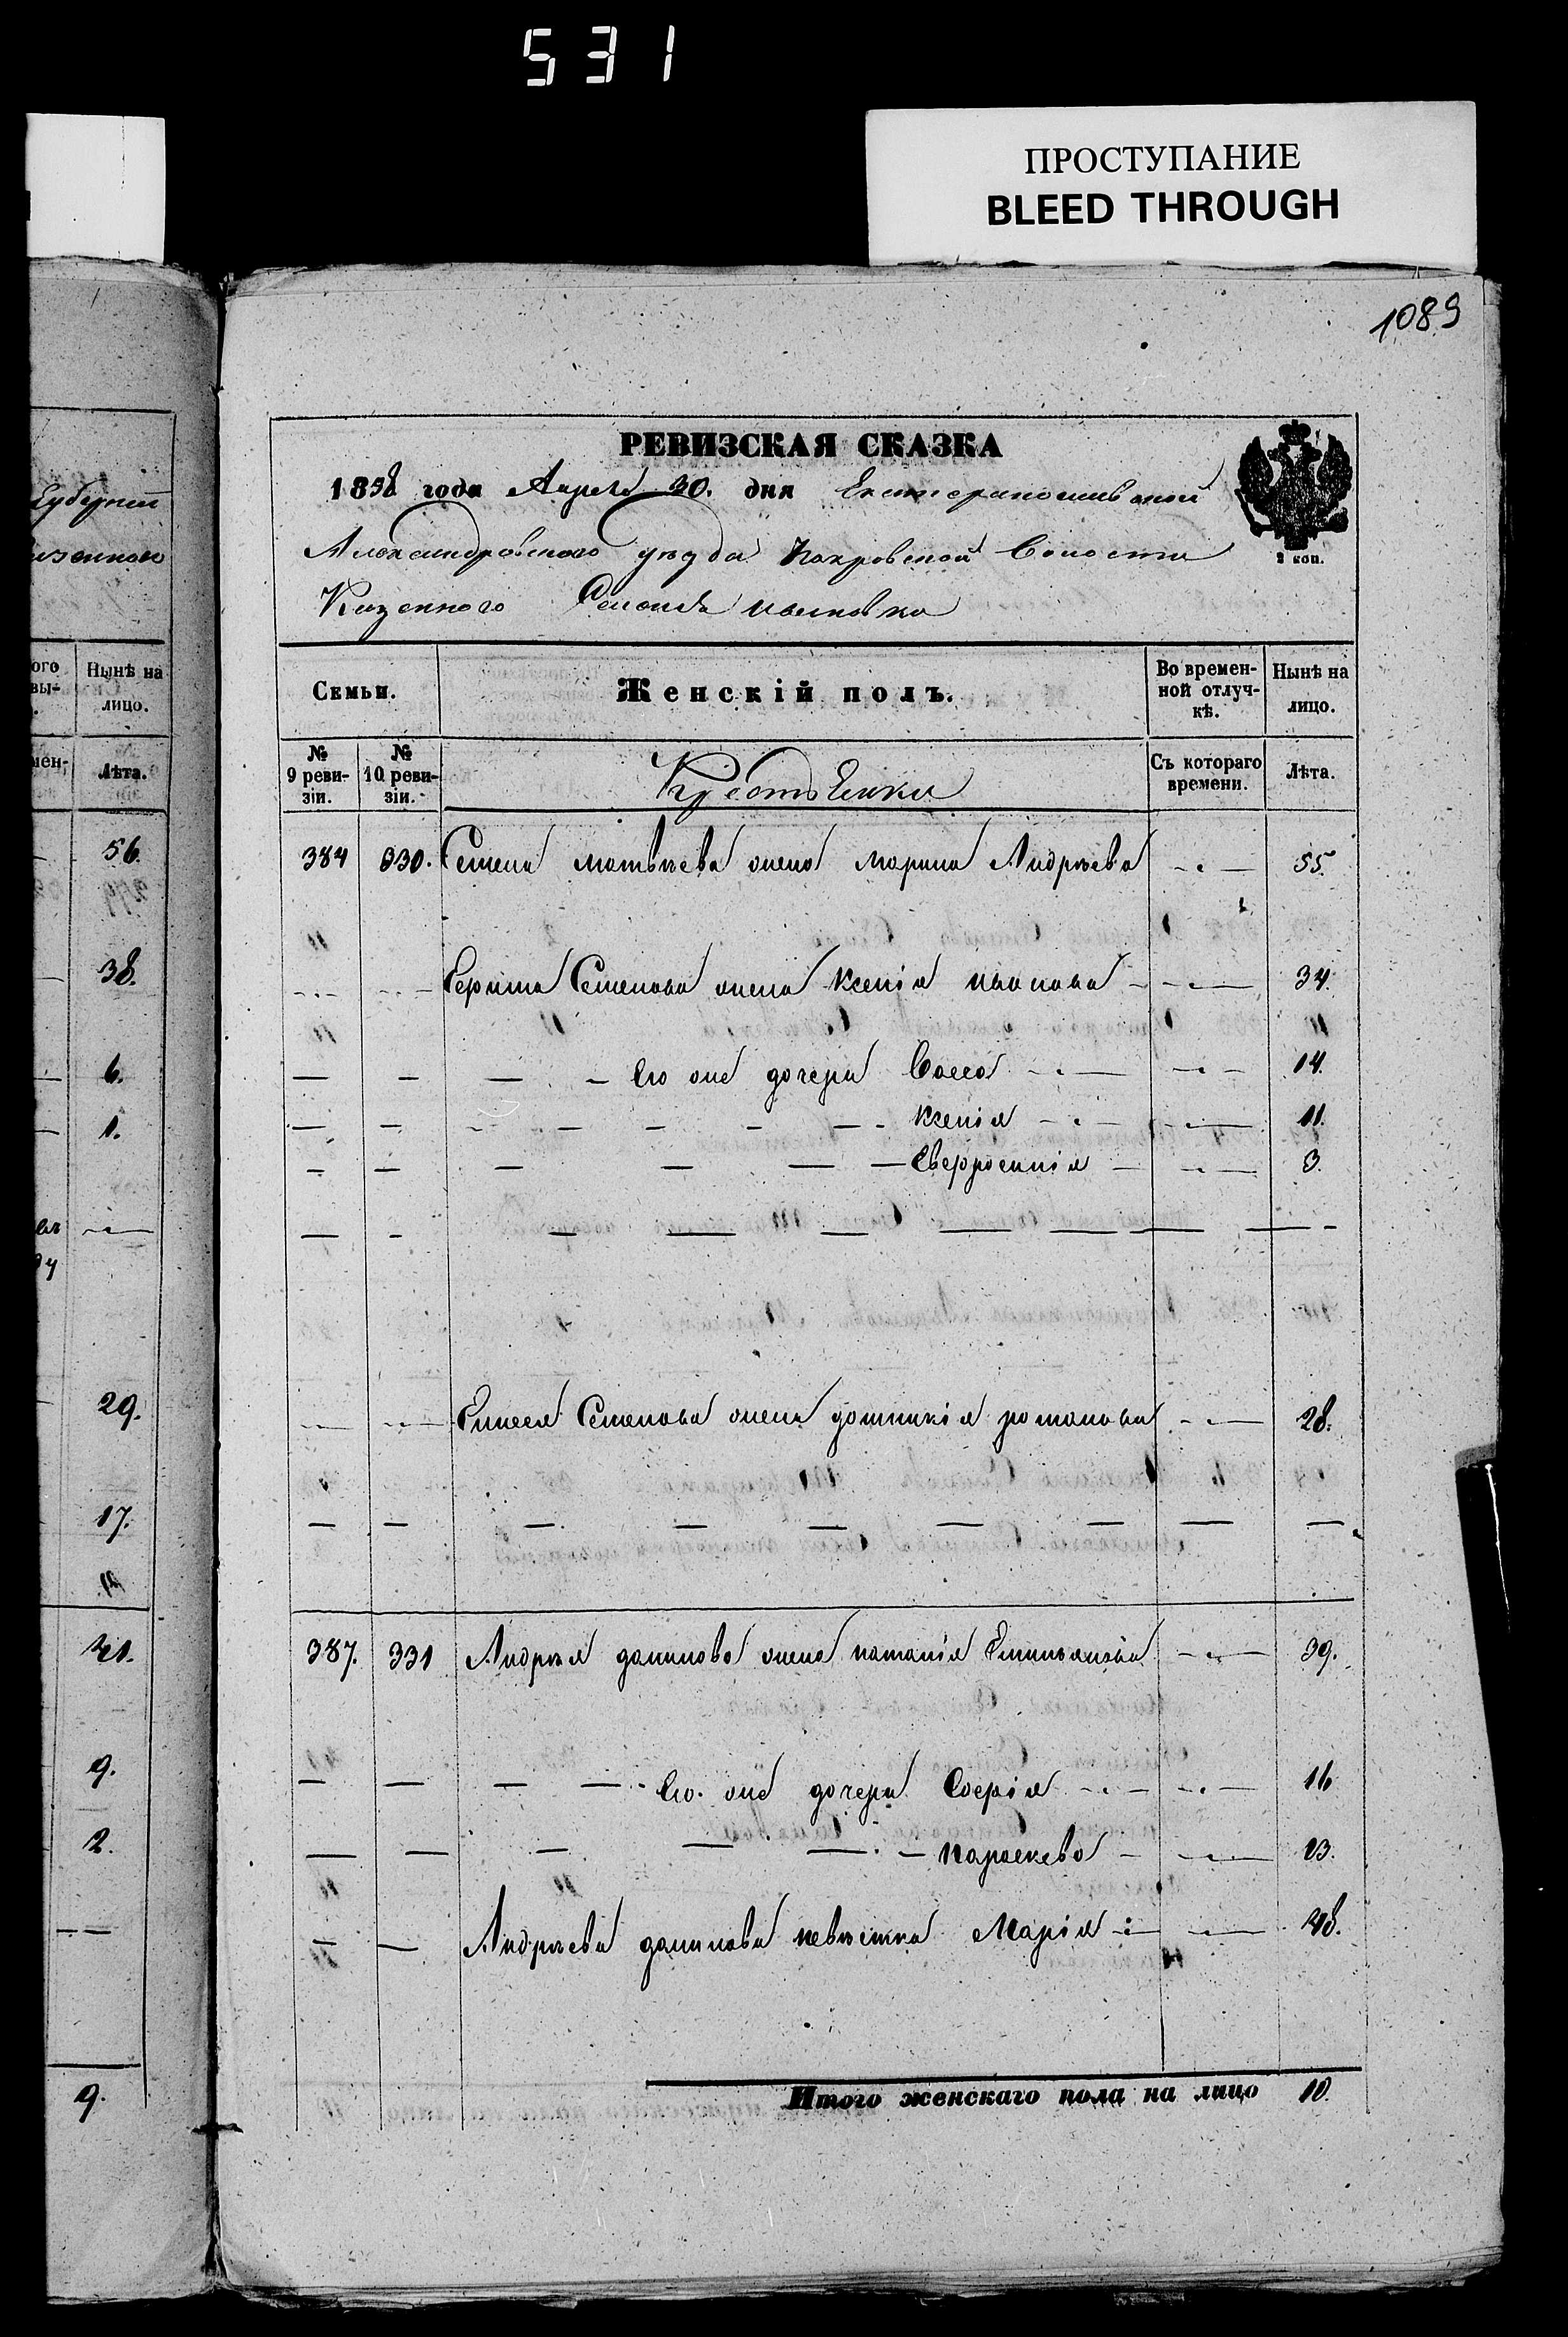 531
ПРОСТУПАНИЕ
BLEED THROUGH
1089
РЕВИЗСКАЯ СКАЗКА
1858 года Апреля 30. дня Екатеринославской
Александровского уѣзда Покровской Волости
Казенного Селенія
2 коп.
Семьи.
Женскій полъ.
Во временной отлучкѣ.
Нынѣ на лицо.
№ 9 ревизіи.
№ 10 ревизіи.
Крестьянки
Съ котораго времени.
Лѣта.
384 330. Семена Матвѣева жена Марина Андрѣева 55.
Семенова жена Ксенія Иванова 34.
Его же дочери Васса 14.
Ксенія 11.
Евфросинія 3.
Елисея Семенова жена Домникія Романова 28.
387. 331 Андрѣя Данилова жена Наталія Емильянова 39.
Его же дочери Софія 16
Параскева 13.
Андрѣева Данилова невѣстка Марія 48.
Итого женскаго пола на лицо 10.
Губерніи
Нынѣ на лицо.
Лѣта.
56.
38.
6.
1.
29.
17.
41.
9.
2.
9.